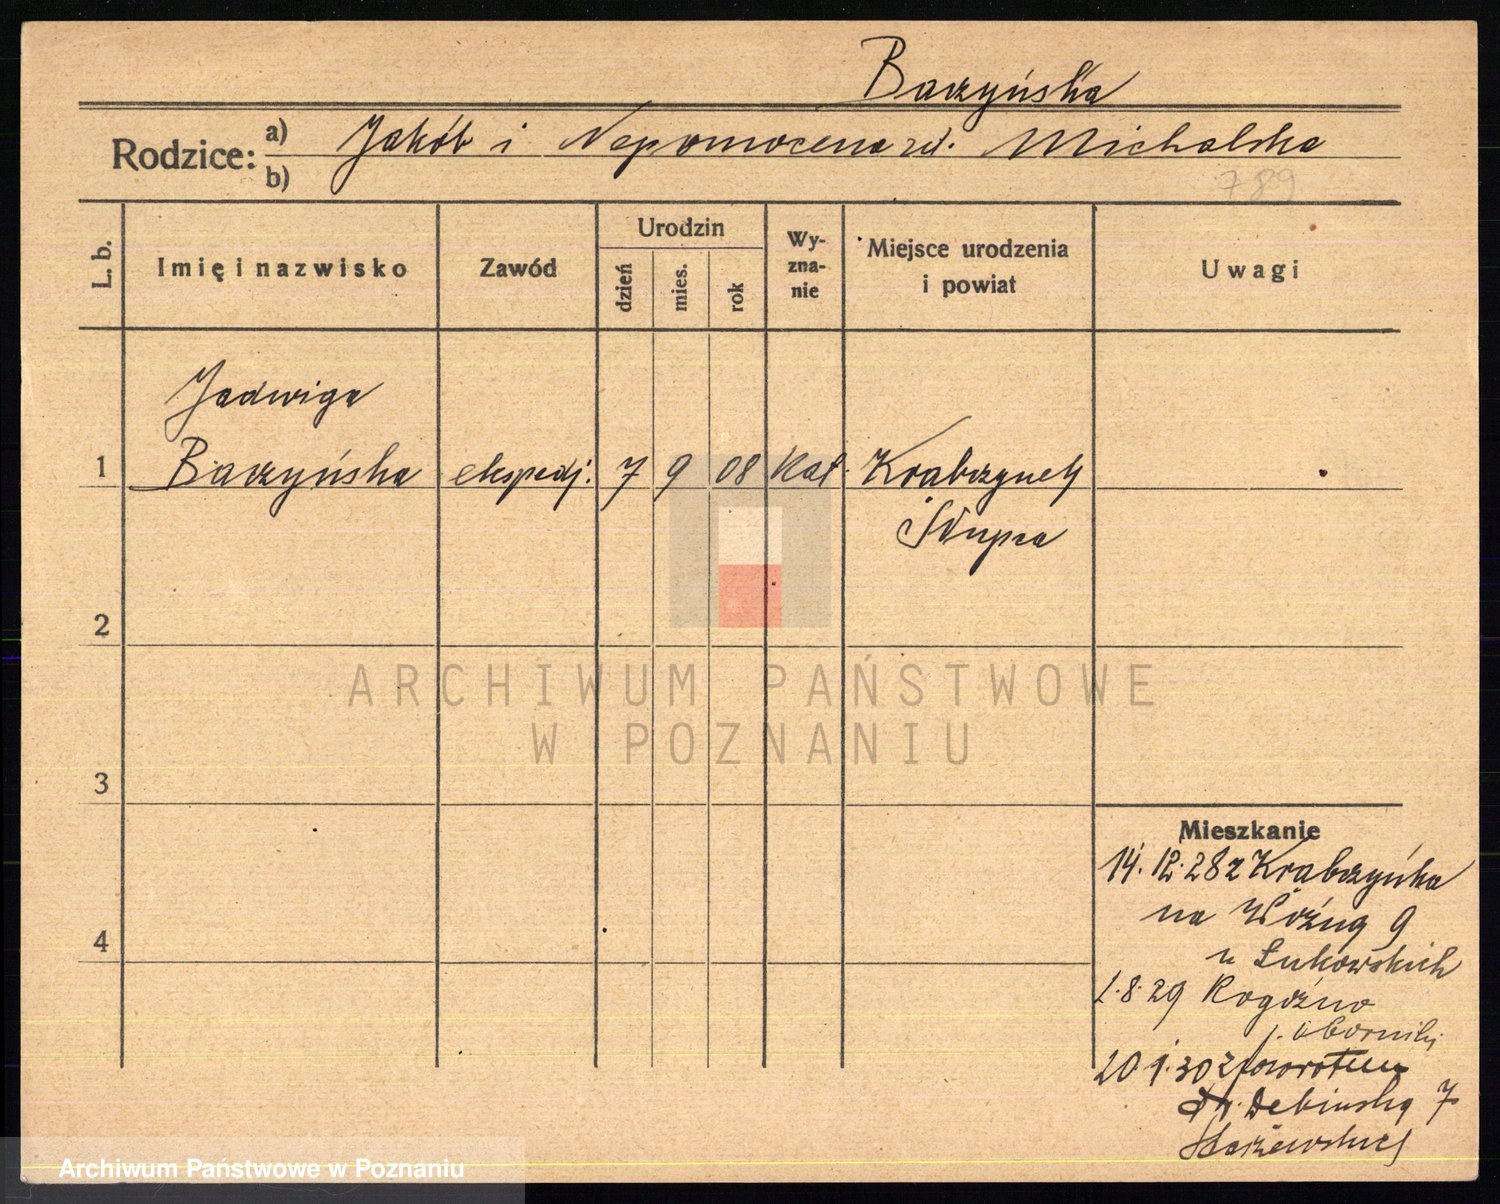 Baczyńska
Rodzice: a) Jakób i Nepomocena zd. Michalska
b)
789
L. b.
Imię i nazwisko
Zawód
Urodzin
dzień
mies.
rok
Wy-
zna-
nie
Miejsce urodzenia
i powiat
Uwagi
Jadwiga
1 Baczyńska ekspedj. 7 9 08 Kat.
Słupca
2
3
4
Mieszkanie
14.12.28 z
na Woźną 9
u Łukowskich
1.8.29 Rogoźno
p. Oborniki
20 1.30 z powrotem
Dębińską 7
ARCHIWUM PAŃSTWOWE
W POZNANIU
Archiwum Państwowe w Poznaniu